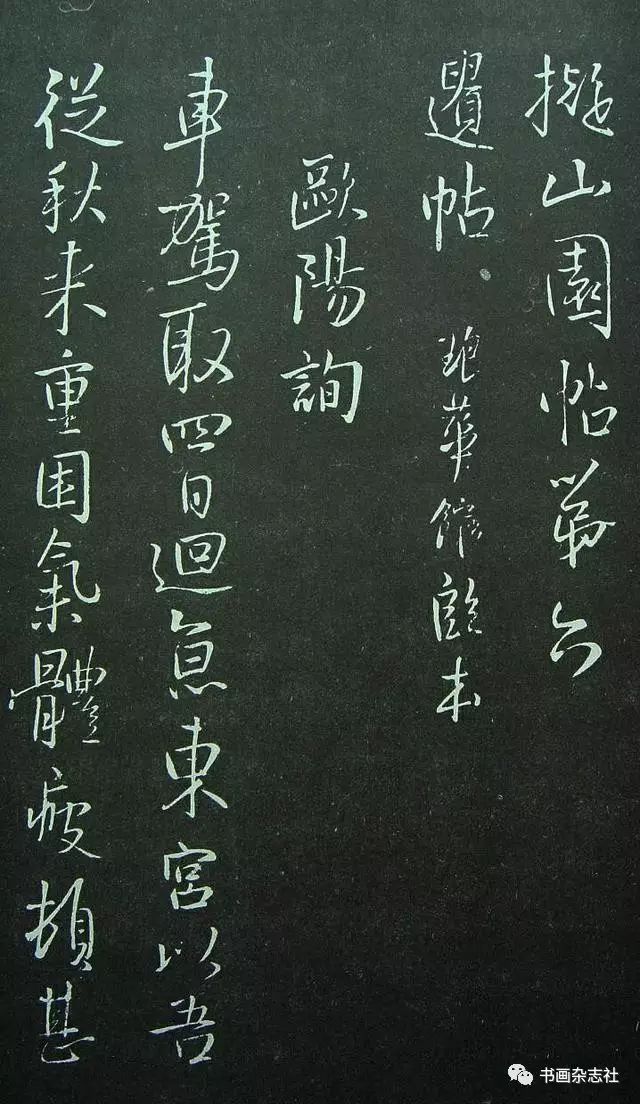 擬山園帖第六
遺帖 琅華館臨本
歐陽詢
車駕取四日迴京東宮以吾
從秋来重困氣體疲頓甚
书画杂志社